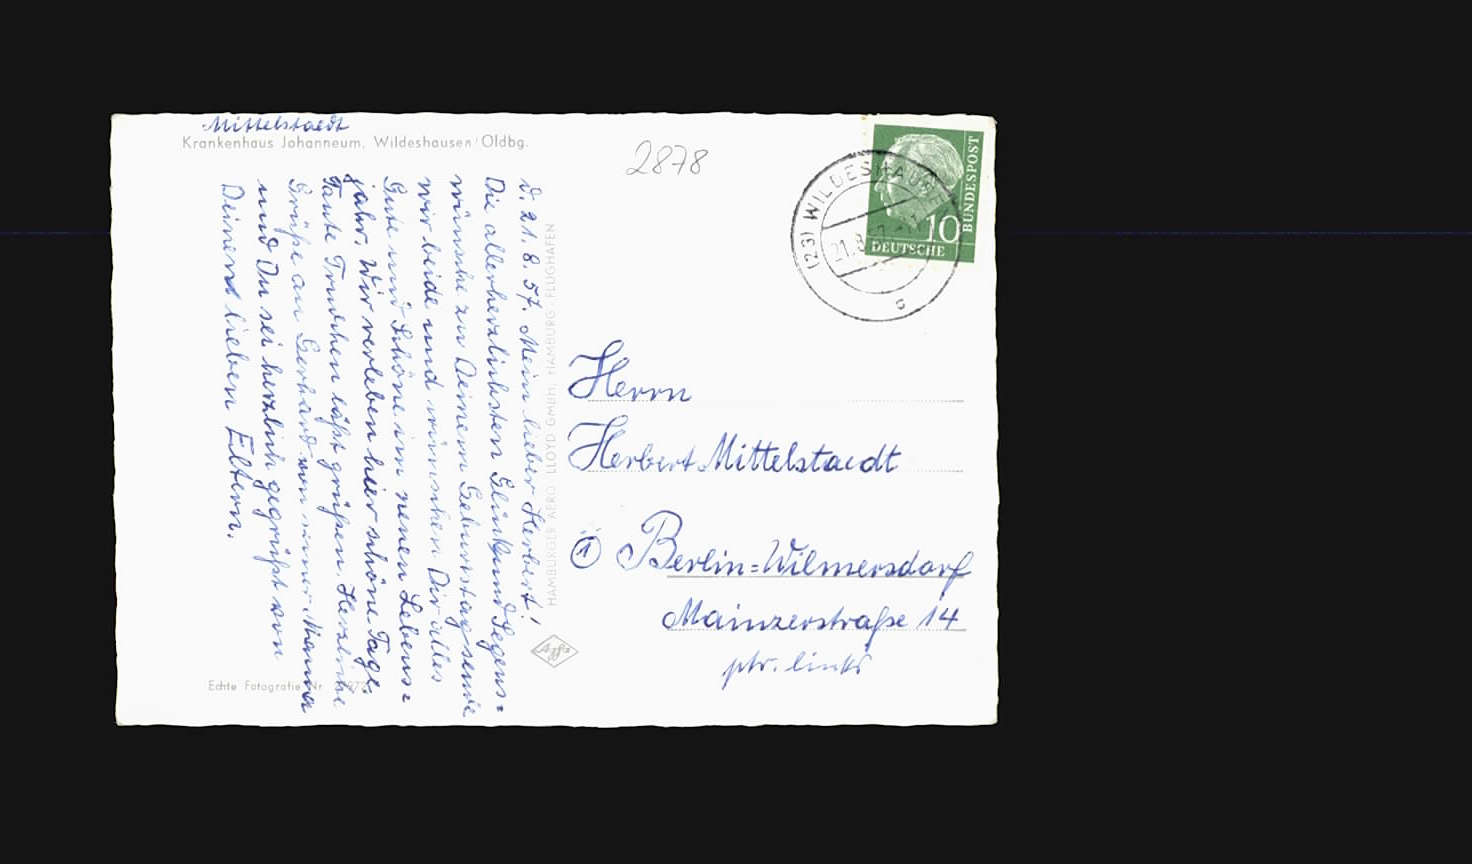 Mittelstaedt
Krankenhaus Johanneum, Wildeshausen/Oldbg.
2878
(23) WILDESHAUSEN
21.8.57
c
10
DEUTSCHE
BUNDESPOST
d. 21. 8. 57. Mein lieber Herbert!
Die allerherzlichsten Glück und Segens=
wünsche zu Deinem Geburtstag senden
wir beide und wünschen Dir alles
Gute und Schöne im neuen Lebens=
jahr. Wir verleben hier schöne Tage.
Tante Trudchen läßt grüßen. Herzliche
Grüße an Gerhard von seiner Mama
und Du sei herzlich gegrüßt von
Deinen lieben Eltern.
HAMBURGER AERO LLOYD GMBH, HAMBURG-FLUGHAFEN
Agfa
Echte Fotografie Nr.
Herrn
Herbert Mittelstaedt
1 Berlin=Wilmersdorf
Mainzerstraße 14
ptr. links